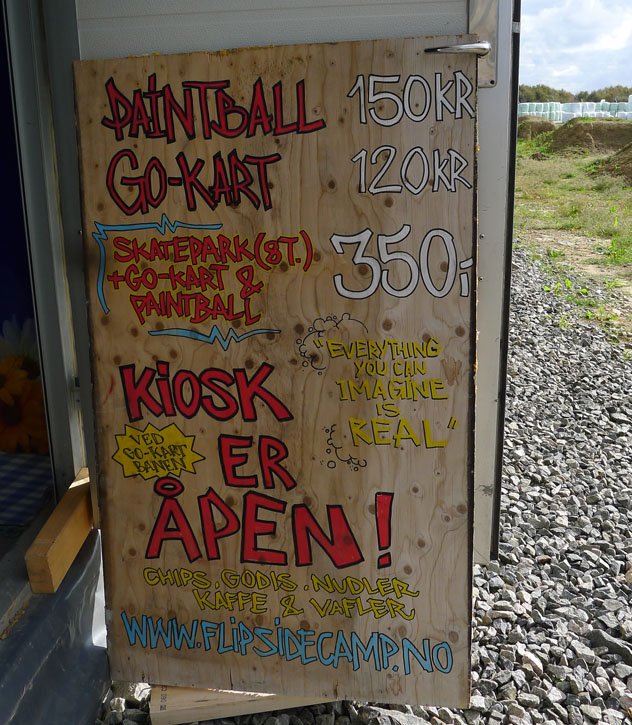 PAINTBALL 150KR
GO-KART 120KR
SKATEPARK (8T.)
+GO-KART &
PAINTBALL
350;
"EVERYTHING
YOU CAN
IMAGINE
IS
REAL"
KIOSK
ER
ÅPEN!
VED
GO-KART
BANEN
CHIPS, GODIS, NUDLER
KAFFE & VAFLER
WWW.FLIPSIDECAMP.NO